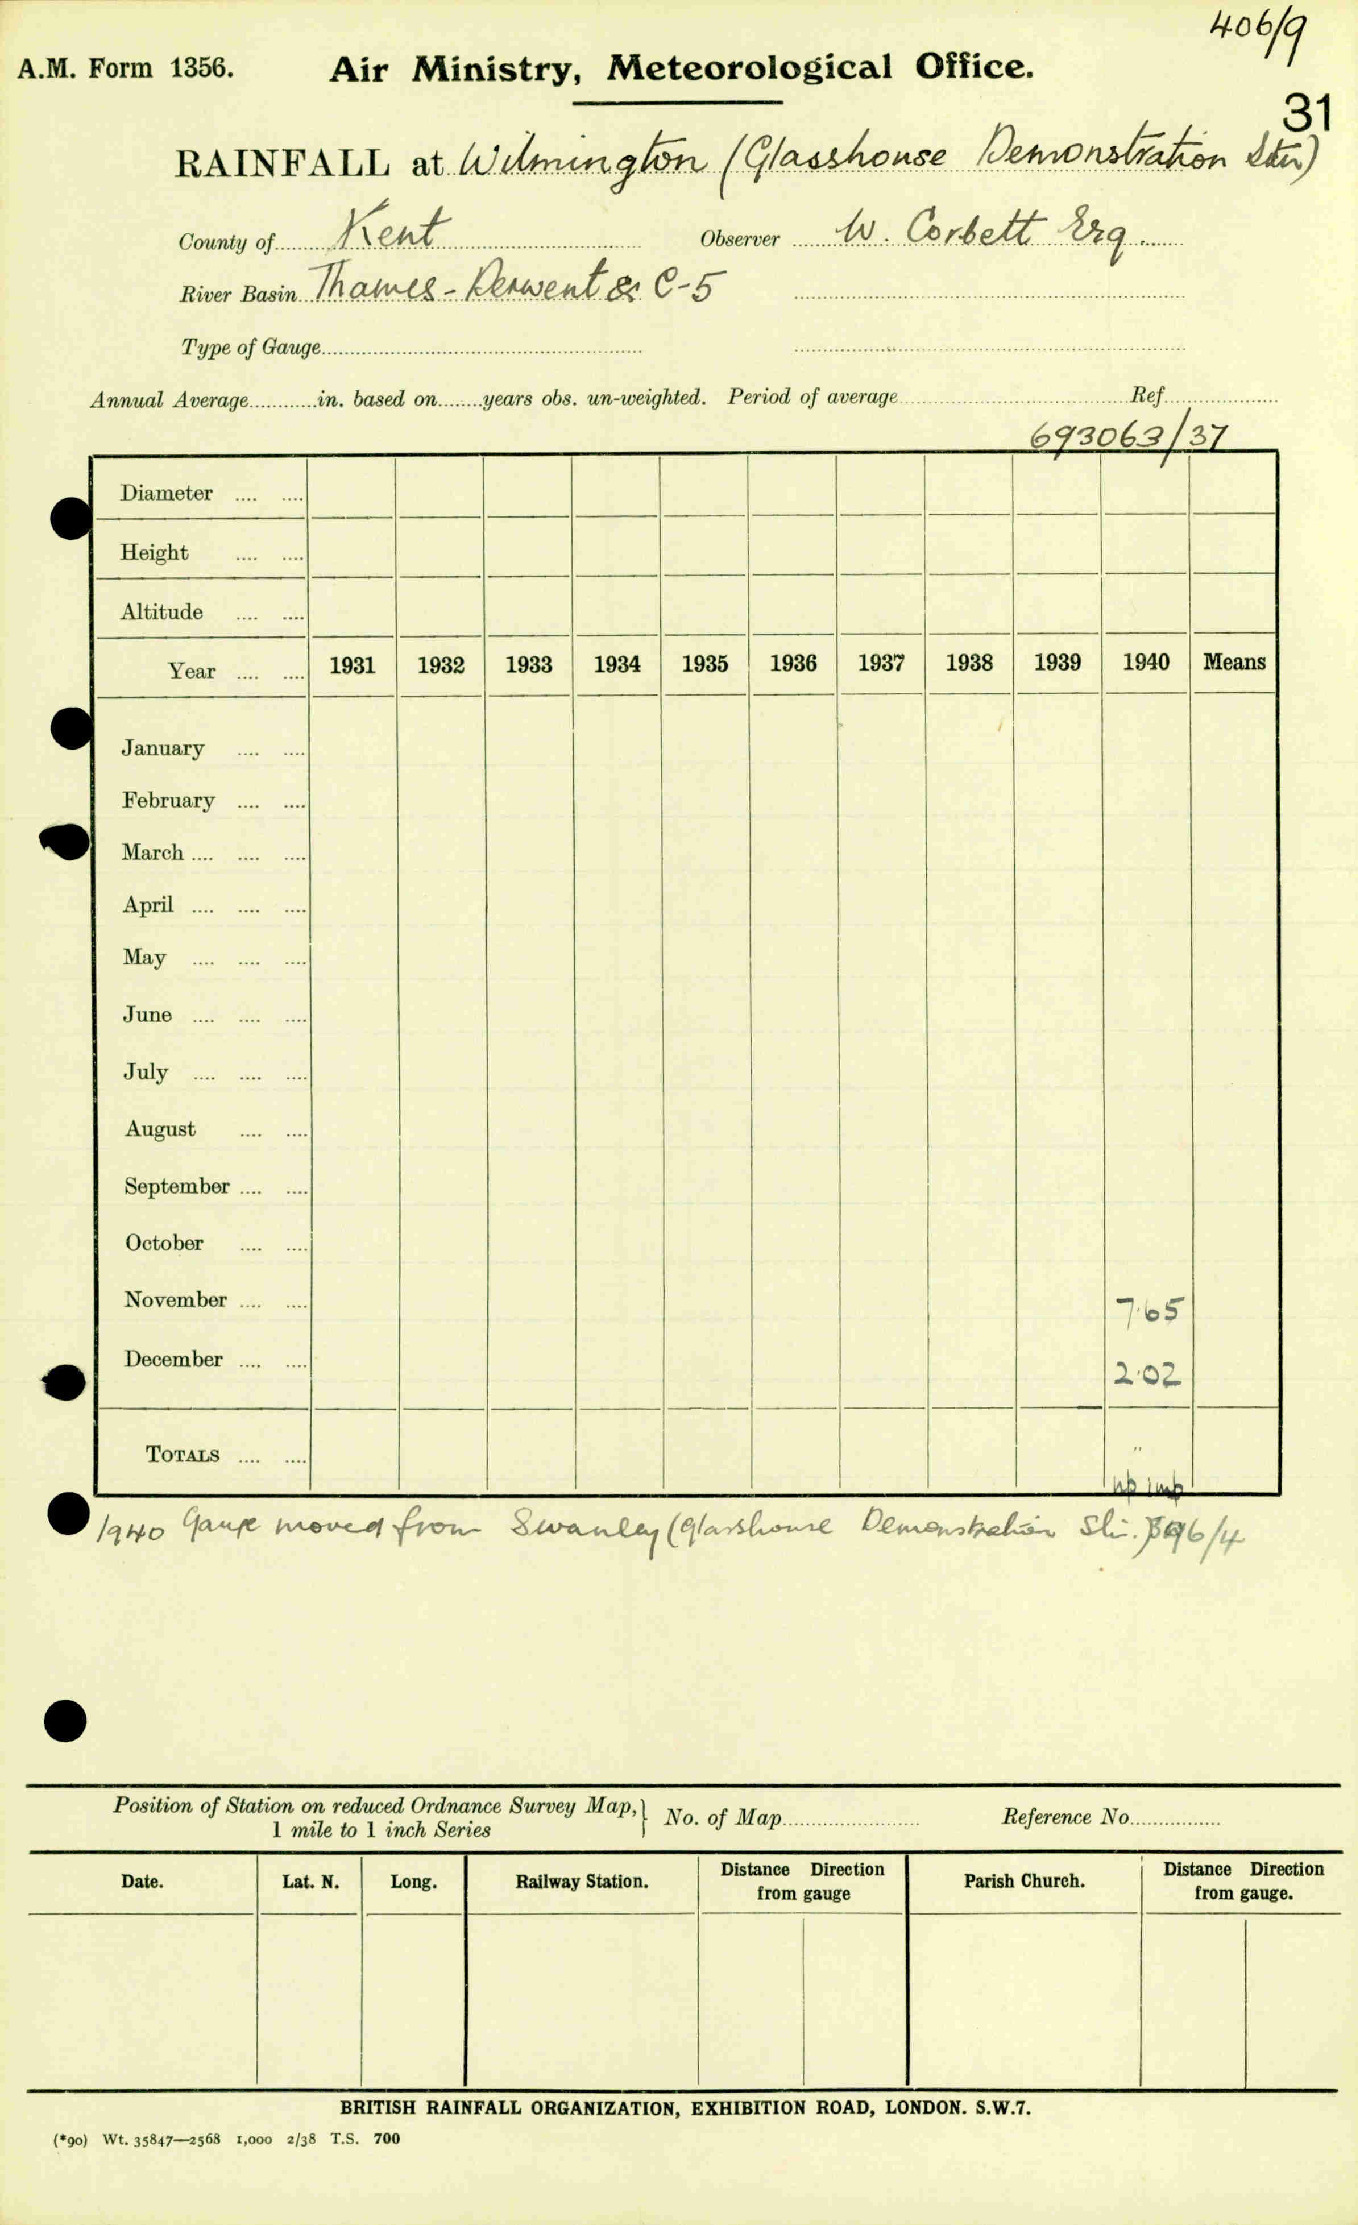 406/9
A.M. Form 1356. Air Ministry, Meteorological Office.
31
RAINFALL at Wilmington (Glasshouse Demonstration Stn)
County of Kent Observer W. Corbett Esq.
River Basin Thames - Derwent & C-5
Type of Gauge
Annual Average in. based on years obs. un-weighted. Period of average Ref.
693063/37
Diameter
Height
Altitude
Year 1931 1932 1933 1934 1935 1936 1937 1938 1939 1940 Means
January
February
March
April
May
June
July
August
September
October
November 7.65
December 2.02
TOTALS
1940 Gauge moved from Swanley (Glasshouse Demonstration Stn.) /4
Position of Station on reduced Ordnance Survey Map, } No. of Map Reference No.
1 mile to 1 inch Series
Date. Lat. N. Long. Railway Station. Distance Direction from gauge Parish Church. Distance Direction from gauge.
BRITISH RAINFALL ORGANIZATION, EXHIBITION ROAD, LONDON. S.W.7.
(*90) Wt. 35847—2568 1,000 2/38 T.S. 700